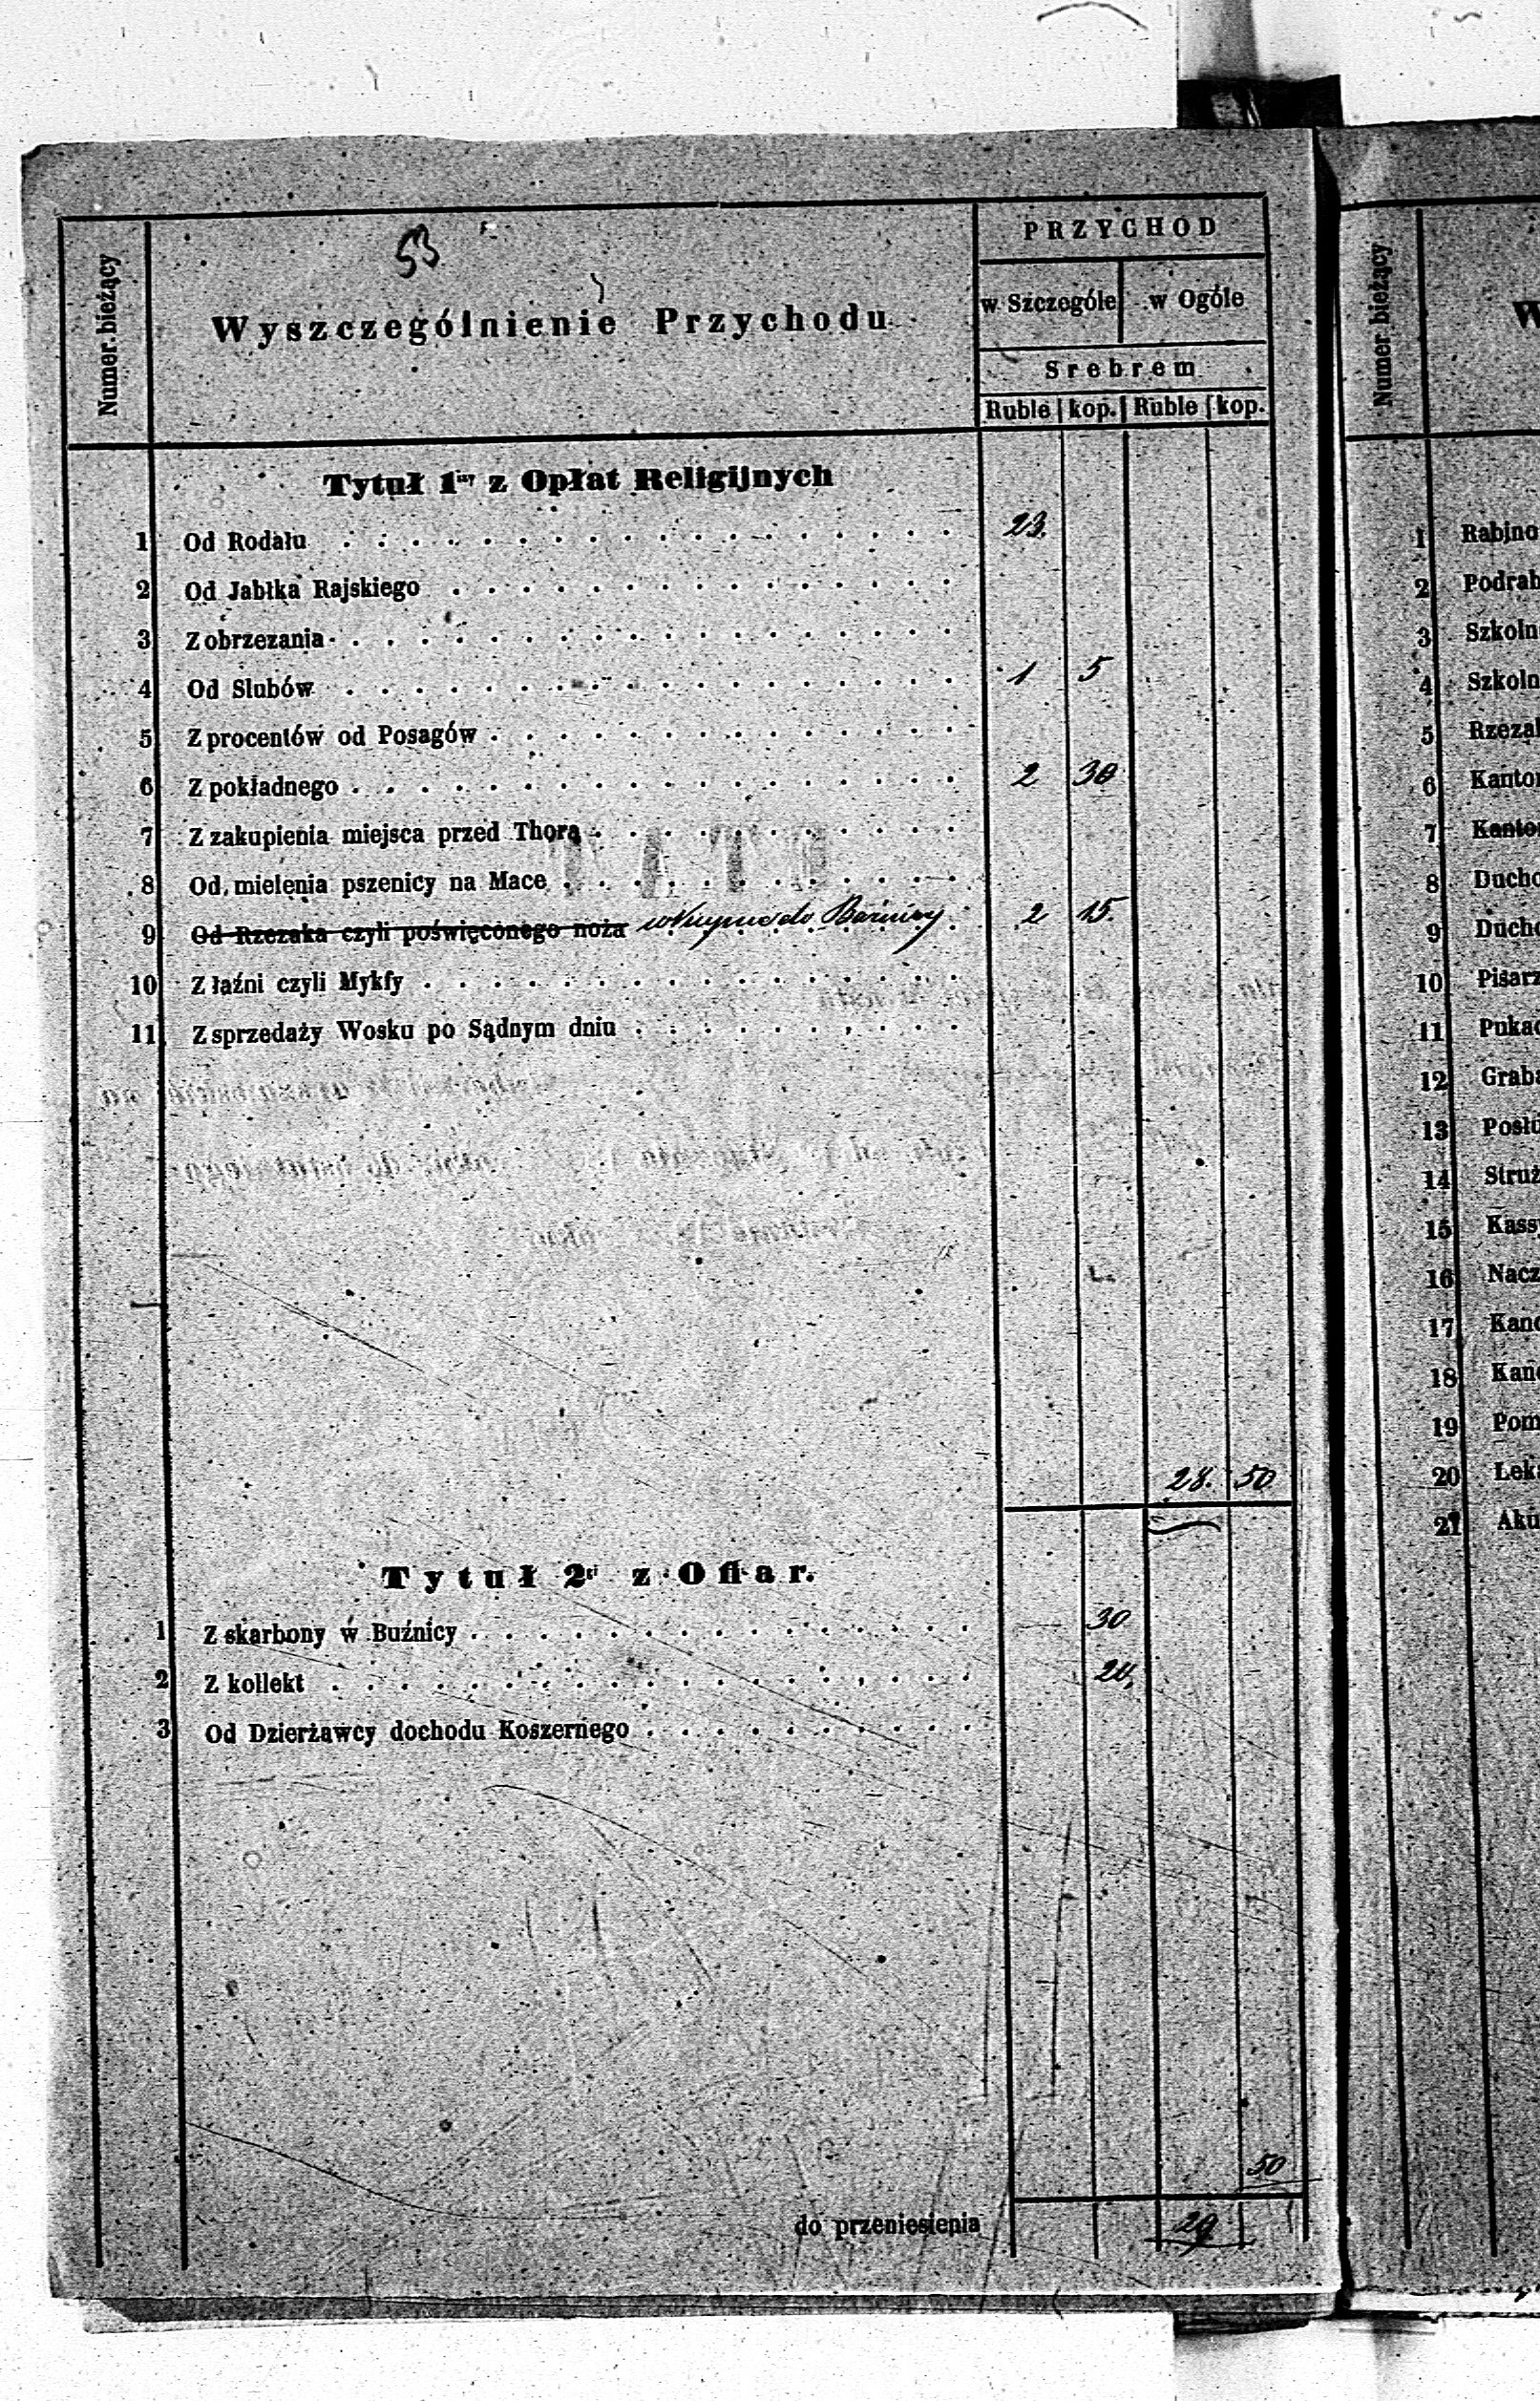 53
Numer. bieżący
Wyszczególnienie Przychodu
PRZYCHOD
w Szczególe w Ogóle
Srebrem
Ruble kop. Ruble kop.
Tytuł 1ny z Opłat Religijnych
1 Od Rodału 23.
2 Od Jabłka Rajskiego
3 Z obrzezania
4 Od Slubów 1 5
5 Z procentów od Posagów
6 Z pokładnego 2 30
7 Z zakupienia miejsca przed Thorą
8 Od mielenia pszenicy na Mace
9 Od Rzezaka czyli poświęconego noża 2 15.
10 Z łaźni czyli Mykfy
11 Z sprzedaży Wosku po Sądnym dniu
28. 50
Tytuł 2gi z Ofiar.
1 Z skarbony w Buźnicy 30
2 Z kollekt
3 Od Dzierżawcy dochodu Koszernego
50
do przeniesienia 29
Numer bieżący
W
1 Rabino
2 Podrab
3 Szkoln
4 Szkoln
5 Rzezak
6 Kantor
7 Kantor
8 Ducho
9 Ducho
10 Pisarz
11 Pukac
12 Graba
13 Posłu
14 Struż
15 Kass
16 Nacz
17 Kanc
18 Kanc
19 Pom
20 Lek
21 Aku